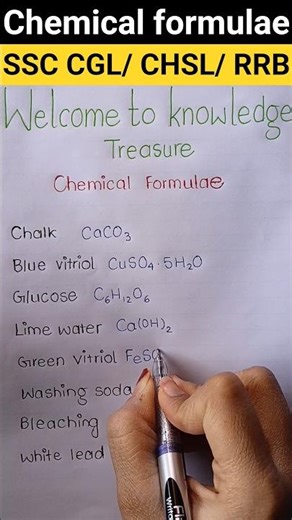 Chemical formulae
SSC CGL/ CHSL/ RRB
Welcome to knowledge
Treasure
Chemical Formulae
Chalk CaCO₃
Blue vitriol CuSO₄·5H₂O
Glucose C₆H₁₂O₆
Lime water Ca(OH)₂
Green vitriol FeSO
Washing soda
Bleaching
White lead